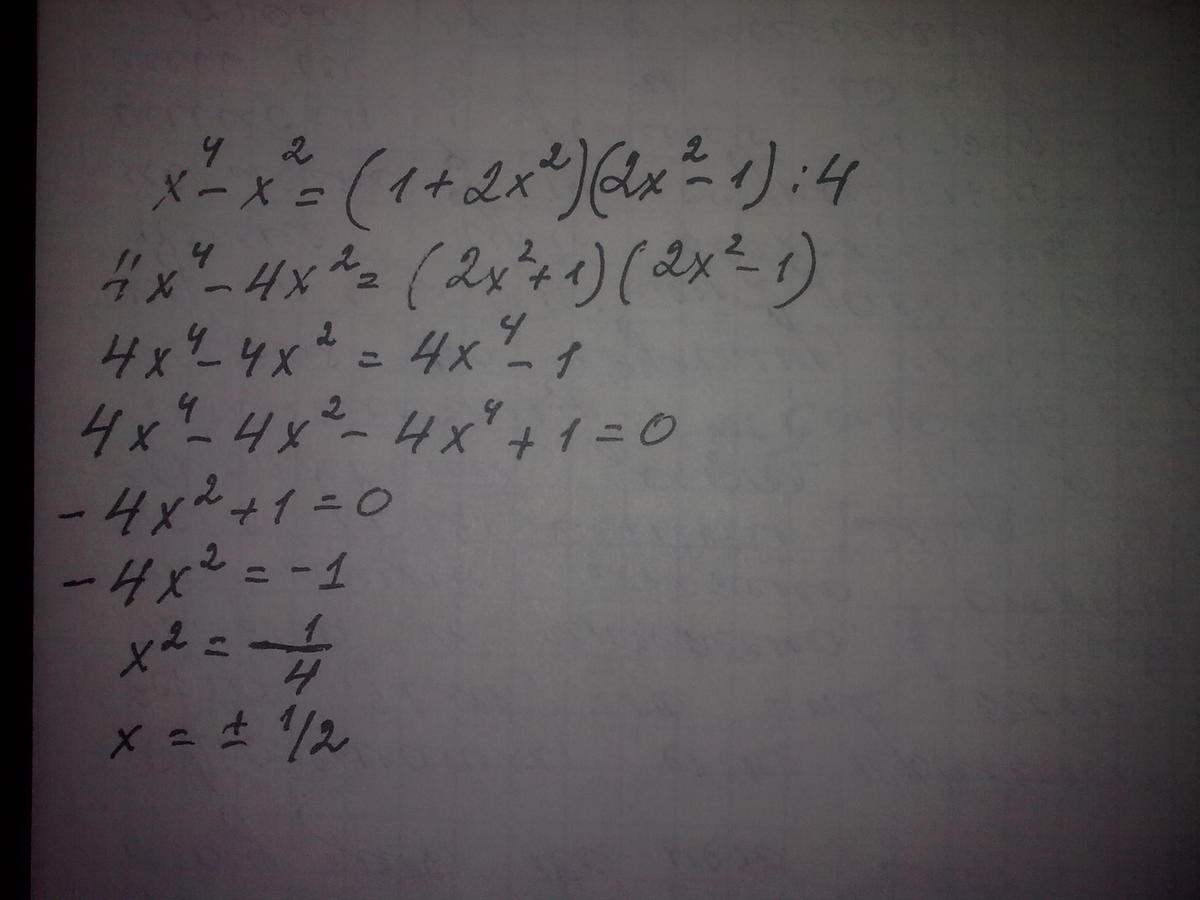 x⁴ - x² = (1 + 2x²)(2x² - 1) : 4
4x⁴ - 4x² = (2x² + 1)(2x² - 1)
4x⁴ - 4x² = 4x⁴ - 1
4x⁴ - 4x² - 4x⁴ + 1 = 0
- 4x² + 1 = 0
- 4x² = -1
x² = 1/4
x = ± 1/2